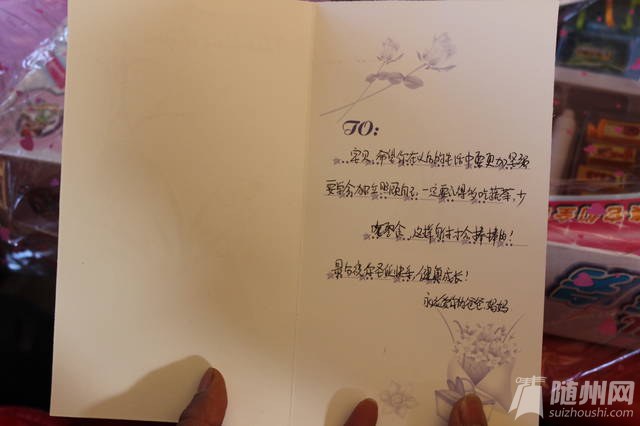 TO:
宝贝,希望你在以后的生活中要更加坚强
要学会独立照顾自己,一定要记得多吃蔬菜,少
吃零食,这样身体才会棒棒的!
最后祝你圣诞快乐/健康成长!
永远爱你的爸爸妈妈
随州网
suizhoushi.com